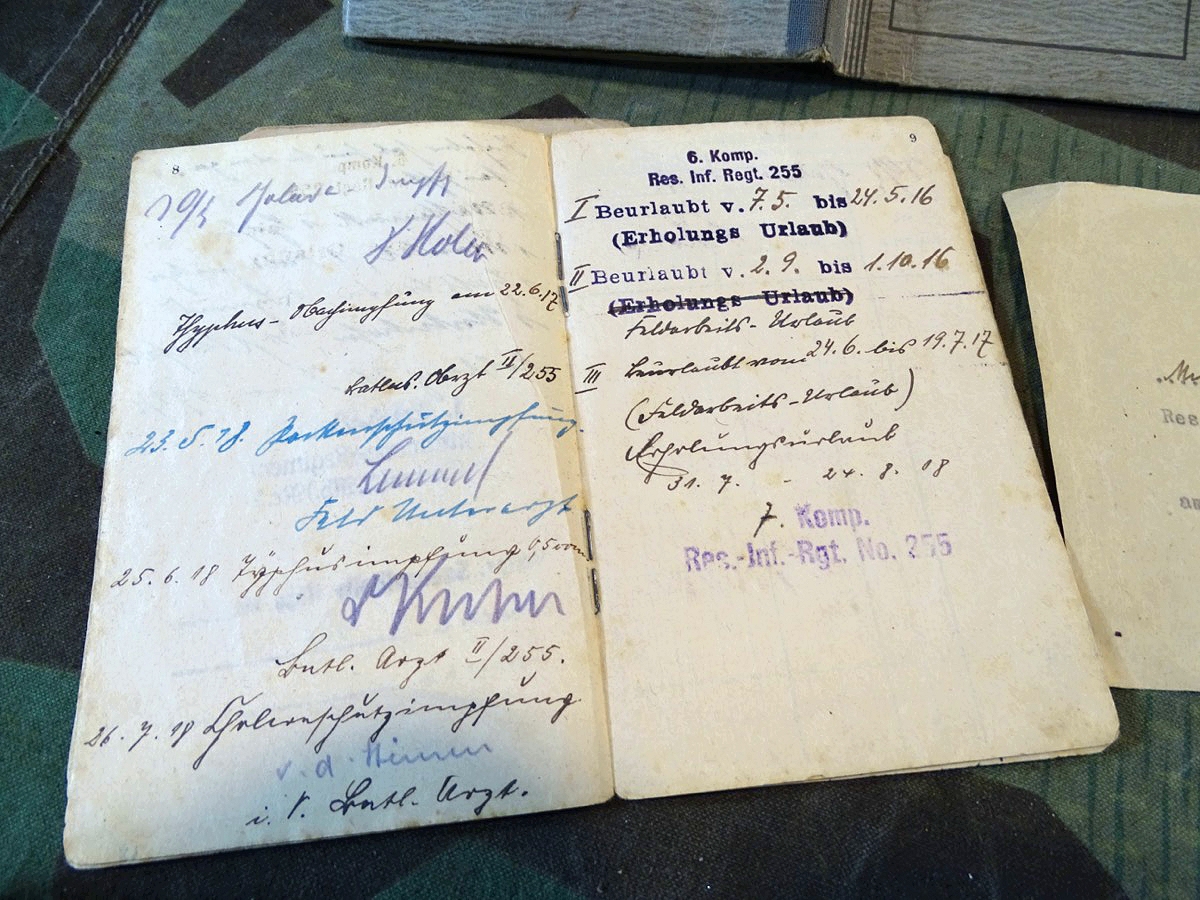 8
Typhus-Nachimpfung am 22.6.17
Batlns. Arzt II/255
23.5.18. Pockenschutzimpfung.
Feld Unterarzt
25.6.18 Typhusimpfung 0,5 ccm
Batl. Arzt II/255.
26.7.18 Choleraschutzimpfung
v. d.
i. V. Batl. Arzt.
9
6. Komp.
Res. Inf. Regt. 255
I Beurlaubt v. 7.5. bis 24.5.16
(Erholungs Urlaub)
II Beurlaubt v. 2.9. bis 1.10.16
(Erholungs Urlaub)
Feldarbeits-Urlaub
III Beurlaubt vom 24.6. bis 19.7.17
(Feldarbeits-Urlaub)
Erholungsurlaub
31.7. - 24.8.18
7. Komp.
Res.-Inf.-Rgt. No. 255
Res